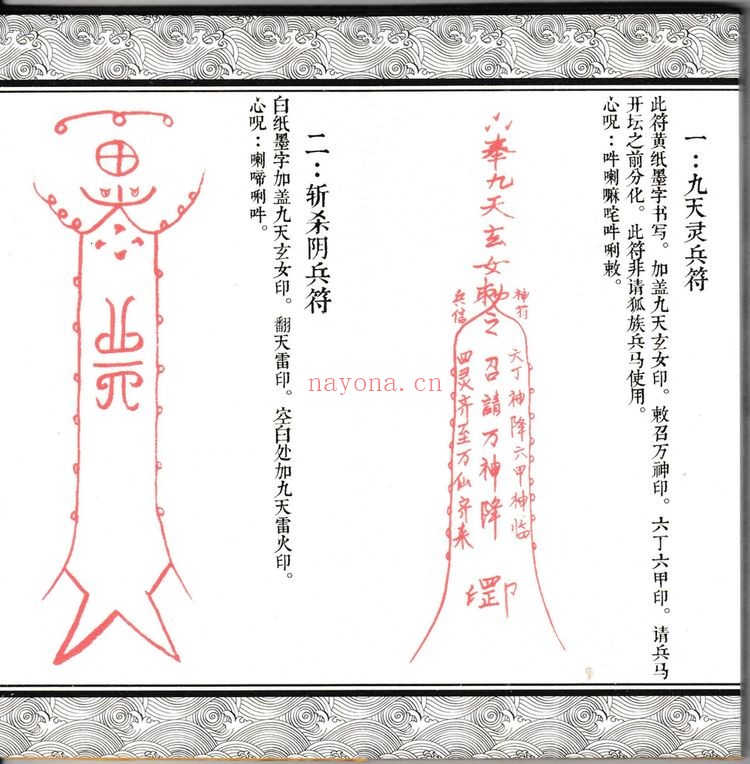 一：九天灵兵符
此符黄纸墨字书写。加盖九天玄女印。敕召万神印。六丁六甲印。请兵马
开坛之前分化。此符非请狐族兵马使用。
心呪：吽喇嘛咤吽唎敕。
神符
六丁神降六甲神临
奉九天玄女勅
召請万神降
兵信
四灵齐至万仙齐来
二：斩杀阴兵符
白纸墨字加盖九天玄女印。翻天雷印。空白处加九天雷火印。
心呪：喇啼唎吽。
nayona.cn